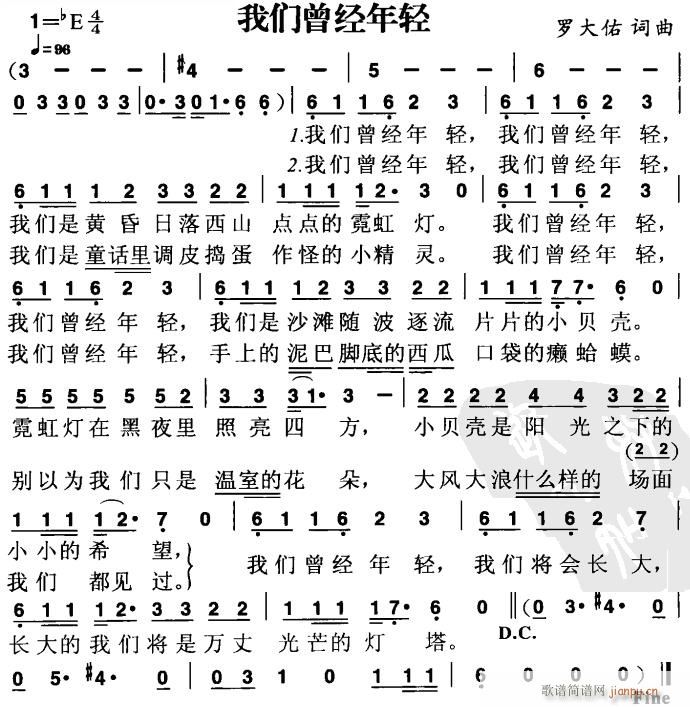 我们曾经年轻
1=♭E 4/4
罗大佑 词曲
♩=96
(3 - - - | #4 - - - | 5 - - - | 6 - - - |
0 33 03 03 3 | 0·3 01·6 6) | 6 1 16 2 3 | 6 1 16 2 3 |
1.我们曾经年 轻， 我们曾经年 轻，
2.我们曾经年 轻， 我们曾经年 轻，
6 11 1 2 3 3 2 2 | 1 11 1 12· 3 0 | 5 1 16 2 3 |
我们是黄 昏 日落西山 点点的霓虹 灯。 我们曾经年 轻，
我们是童话里调皮捣蛋 作怪的小精 灵。 我们曾经年 轻，
6 1 16 2 3 | 5 11 1 2 3 3 2 2 | 1 11 17 7· 6 0 |
我们曾经年 轻， 我们是沙滩随波逐流 片片的小贝 壳。
我们曾经年 轻， 手上的泥巴脚底的西瓜 口袋的癞蛤 蟆。
5 5 5 5 5 5 5 | 3 3 31· 3 - | 2 2 2 2 4 4 3 22 |
霓虹灯在黑夜里 照亮四 方， 小贝壳是阳光之下的
(2 2)
别以为我们只是温室的花 朵， 大风大浪什么样的 场面
1 11 12· 7 0 | 6 1 16 2 3 | 6 1 16 2 7 |
小小的希 望， 我们曾经年 轻， 我们将会长 大，
我们 都见 过。
6 11 12· 3 3 2 2 | 1 11 17· 6 0 || (0 3· #4· 0 |
长大的我们将是万丈 光芒的灯 塔。 D.C.
0 5· #4· 0 | 0 3 1 0 1 1 | 6 0 0 0) ||
歌谱简谱网
jianpu.cn
Fine